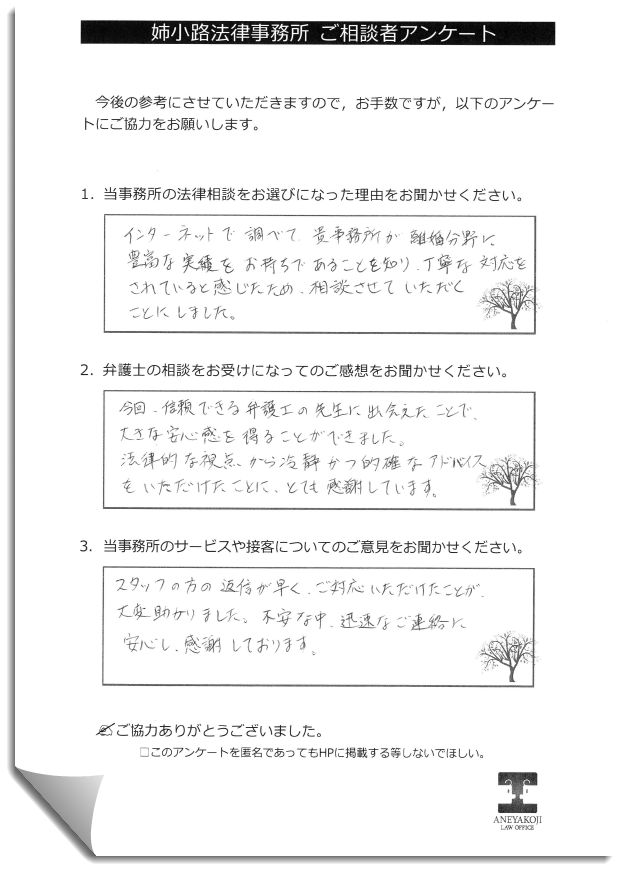 姉小路法律事務所 ご相談者アンケート
今後の参考にさせていただきますので，お手数ですが，以下のアンケー
トにご協力をお願いします。
1．当事務所の法律相談をお選びになった理由をお聞かせください。
インターネットで調べて、貴事務所が離婚分野に
豊富な実績をお持ちであることを知り、丁寧な対応を
されていると感じたため、相談させていただく
ことにしました。
2．弁護士の相談をお受けになってのご感想をお聞かせください。
今回、信頼できる弁護士の先生に出会えたことで、
大きな安心感を得ることができました。
法律的な視点から冷静かつ的確なアドバイス
をいただけたことに、とても感謝しています。
3．当事務所のサービスや接客についてのご意見をお聞かせください。
スタッフの方の返信が早く、ご対応いただけたことが、
大変助かりました。不安な中、迅速なご連絡に
安心し、感謝しております。
ご協力ありがとうございました。
□このアンケートを匿名であってもHPに掲載する等しないでほしい。
ANEYAKOJI
LAW OFFICE